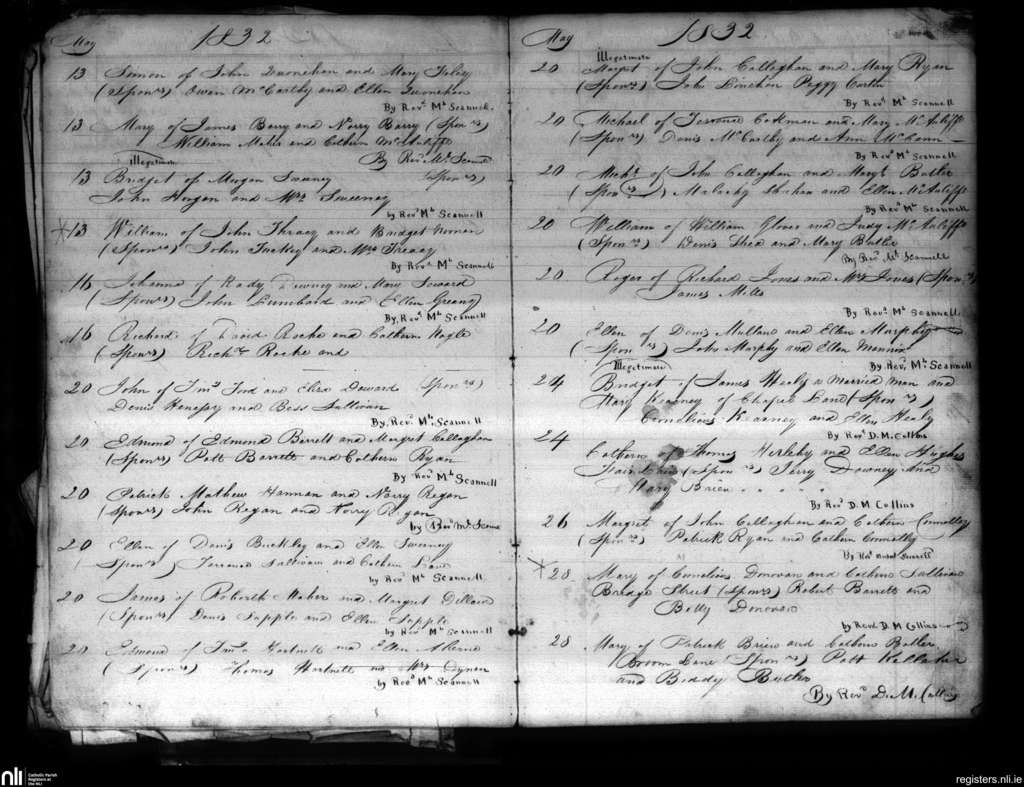 May 1832
13 Simon of John Duonehan and Mary
(Spons) Owen McCarthy and Ellen Duonehan
By Revd Mr Scannell
13 Mary of James Barry and Norry Barry (Spons)
William and Cathern McAuliffe
By Revd Mr Scannell
Illegetimate
13 Bridget of Morgan Sweeney (Spons)
John Hogan and Mrs Sweeney
by Revd Mr Scannell
13 William of John Threacy and Bridget
(Spons) John Tuckey and Mrs Treacy
By Revd Mr Scannell
16 Johanna of Downey and Mary
(Spons) John Lumbard and Ellen
By Revd Mr Scannell
16 Richard of David Roche and Cathern Nagle
(Spons) Richd Roche and
20 John of and Eliza (Spons)
Denis Henessy and Bess Sullivan
By Revd Mr Scannell
20 Edmund of Edmond Barrett and Margret Callaghan
(Spons) Patt Barrett and Cathern Ryan
By Revd Mr Scannell
20 Patrick Mathew Hannan and Norry Regan
(Spons) John Regan and Norry Regan
by Revd Mr Scannell
20 Ellen of Denis Buckley and Ellen Sweeney
(Spons) Terrence Sullivan and Cathern
by Revd Mr Scannell
20 James of Maher and Margret Dillon
(Spons) Denis Supple and Ellen Supple
by Revd Mr Scannell
20 Edmond of Hartnett and Ellen Aherne
(Spons) Thomas Hartnett and Mrs
by Revd Mr Scannell
May 1832
Illegetimate
20 Margret of John Callaghan and Mary Ryan
(Spons) John Linehan Peggy
By Revd Mr Scannell
20 Michael of and Mary McAuliffe
(Spons) Denis McCarthy and Ann
By Revd Mr Scannell
20 Michl of John Callaghan and Margt Butler
(Spons) Malachy and Ellen McAuliffe
By Revd Mr Scannell
20 William of William Glover and Judy McAuliffe
(Spons) Denis Shea and Mary Butler
By Revd Mr Scannell
20 Roger of Richard Jones and Mrs Jones (Spons)
James Mills
By Revd Mr Scannell
20 Ellen of Denis Mullane and Ellen Murphy
(Spons) John Murphy and Ellen Mannix
By Revd Mr Scannell
Illegetimate
24 Bridget of James Healy a Married Man and
Mary Kearney of Chapel Lane (Spons)
Cornelius Kearney and Ellen Healy
By Revd D.M. Collins
24 Cathern of Thomas Herlehy and Ellen Hughes
(Spons) Jerry Downey And
Mary Brien
By Revd D.M Collins
26 Margret of John Callaghan and Cathern Connolly
(Spons) Patrick Ryan and Cathern Connolly
By Revd Scannell
28 Mary of Cornelius Donovan and Cathern Sullivan
Bridge Street (Spons) Robert Barrett and
Betty Donovan
by Revd D.M Collins
28 Mary of Patrick Brien and Cathern Butler
Broom Lane (Spons) Patt Kelleher
and Biddy Butler
By Revd D.M. Collins
nli Catholic Parish
Registers at
the NLI
registers.nli.ie